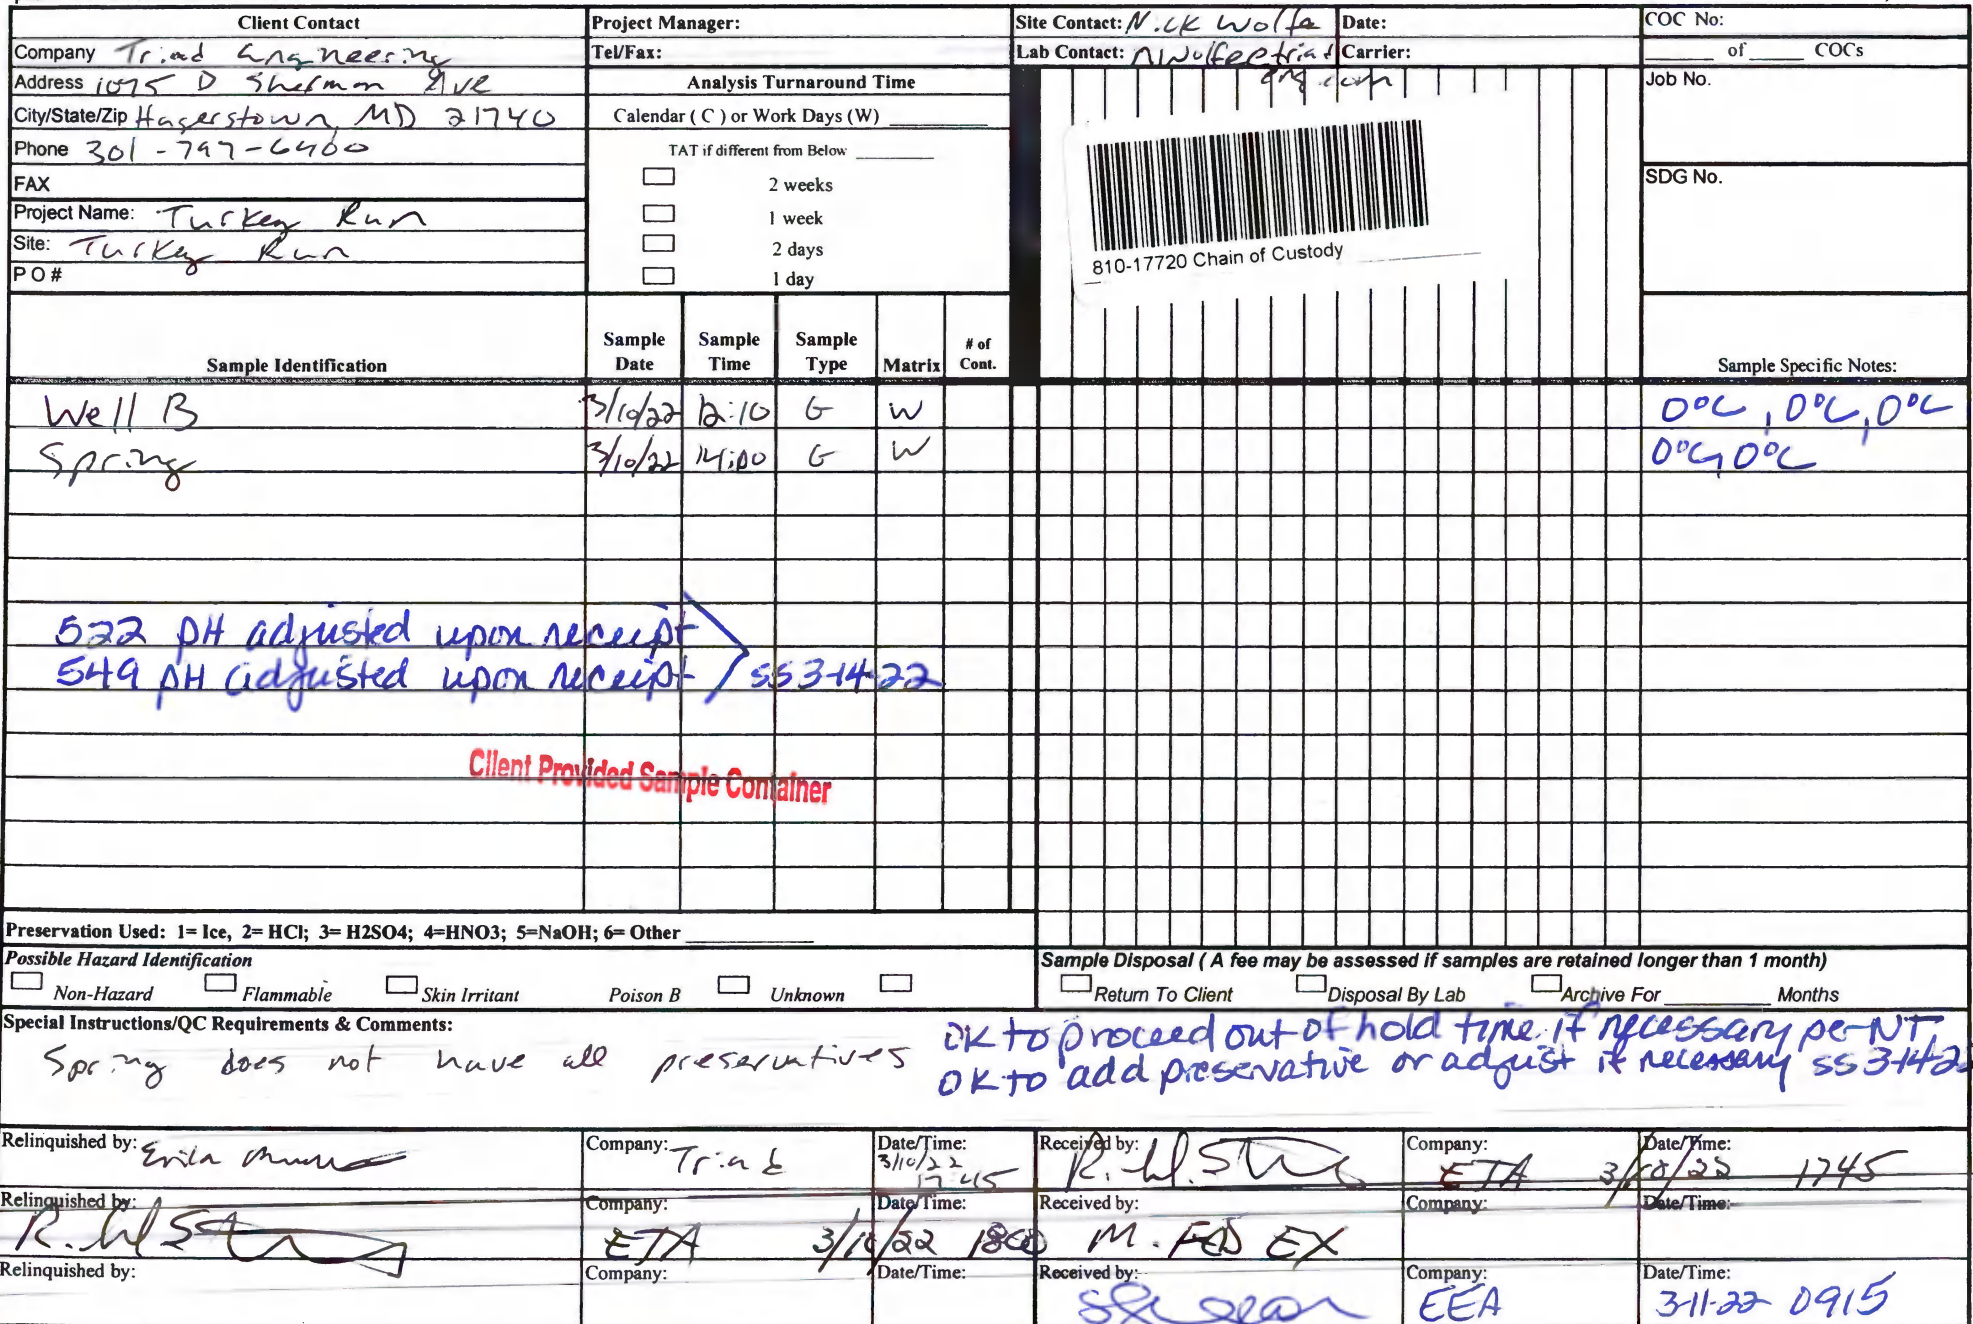 Client Contact
Company Triad Engineering
Address 1075 D Sherman Ave
City/State/Zip Hagerstown, MD 21740
Phone 301-797-6400
FAX
Project Name: Turkey Run
Site: Turkey Run
P O #
Project Manager:
Tel/Fax:
Analysis Turnaround Time
Calendar ( C ) or Work Days (W)
TAT if different from Below
2 weeks
1 week
2 days
1 day
Site Contact: Nick Wolfe
Date:
Lab Contact: NWolfe@triad
eng.com
Carrier:
810-17720 Chain of Custody
COC No:
of COCs
Job No.
SDG No.
Sample Identification
Sample Date
Sample Time
Sample Type
Matrix
# of Cont.
Sample Specific Notes:
Well B 3/10/22 12:10 G W 0°C, 0°C, 0°C
Spring 3/10/22 14:00 G W 0°C, 0°C
522 pH adjusted upon receipt
549 pH adjusted upon receipt SS 3-14-22
Client Provided Sample Container
Preservation Used: 1= Ice, 2= HCl; 3= H2SO4; 4=HNO3; 5=NaOH; 6= Other
Possible Hazard Identification
Non-Hazard Flammable Skin Irritant Poison B Unknown
Sample Disposal ( A fee may be assessed if samples are retained longer than 1 month)
Return To Client Disposal By Lab Archive For Months
Special Instructions/QC Requirements & Comments:
Spring does not have all preservatives
OK to proceed out of hold time if necessary per NT.
OK to add preservative or adjust if necessary SS 3-14-22
Relinquished by: Company: Triad Date/Time: 3/10/22 17:45 Received by: Company: ETA Date/Time: 3/10/22 1745
Relinquished by: Company: ETA Date/Time: 3/10/22 1800 Received by: M. FED EX Company: Date/Time:
Relinquished by: Company: Date/Time: Received by: Company: EEA Date/Time: 3-11-22 0915